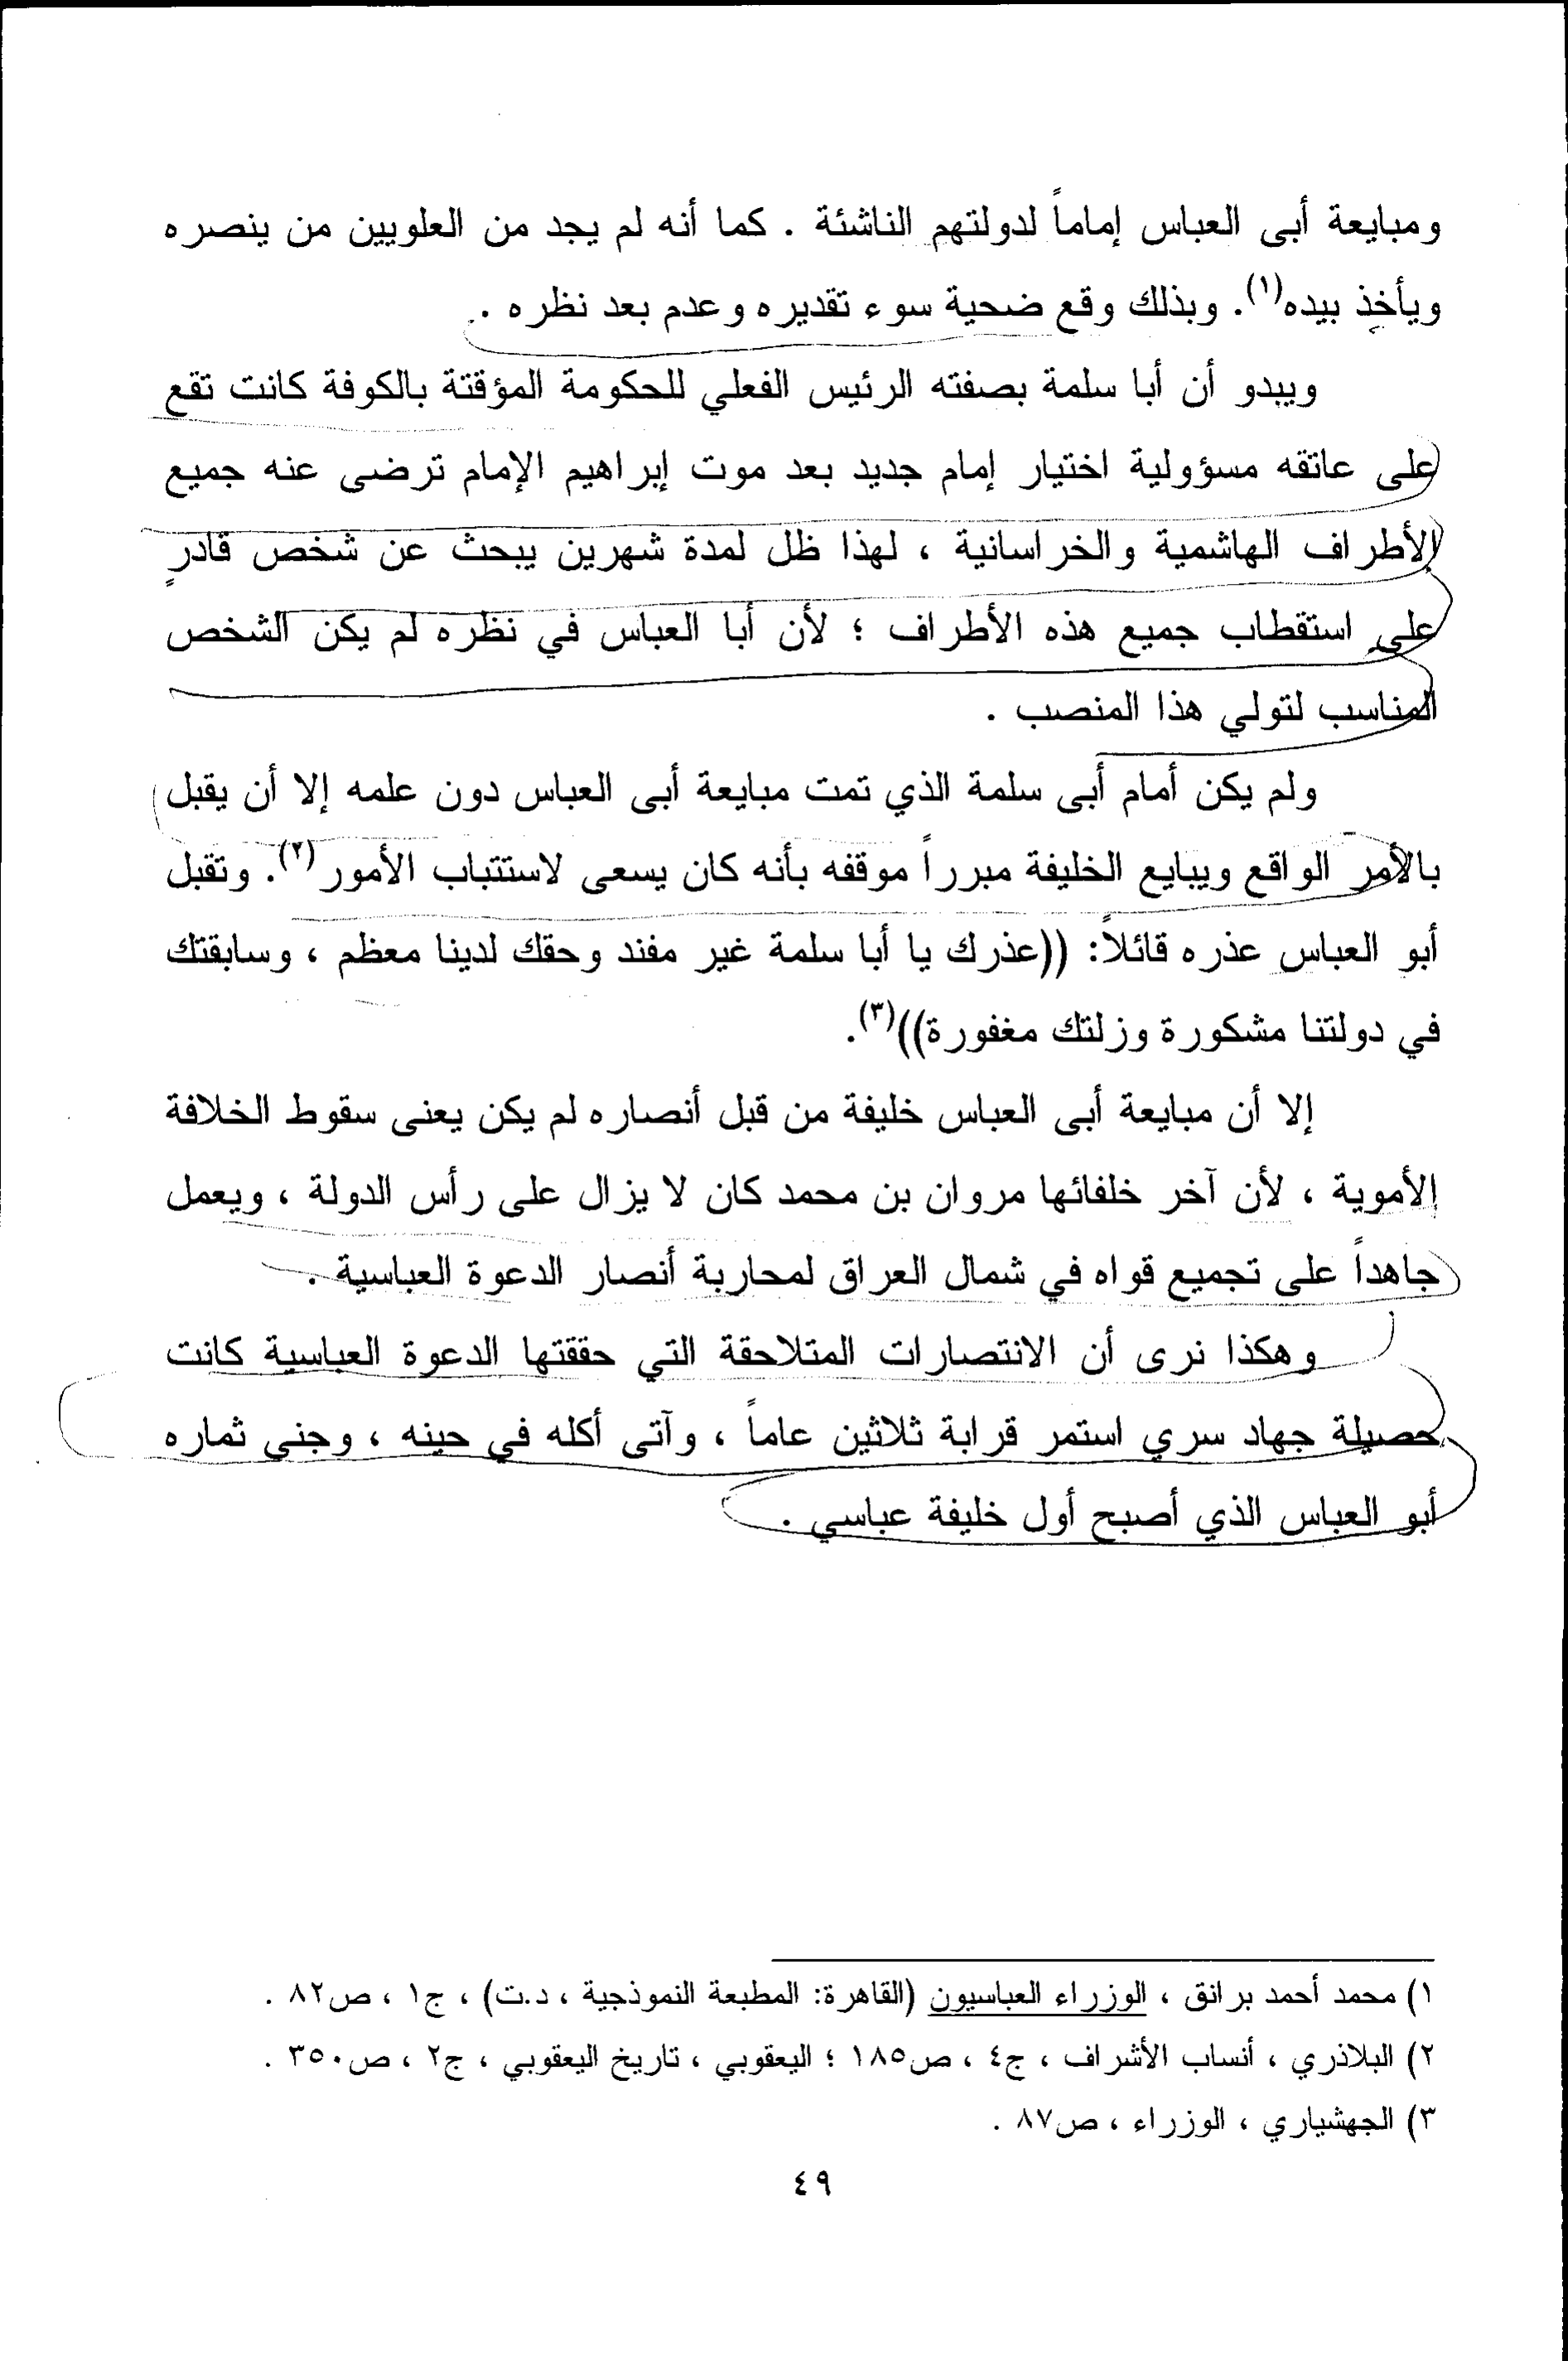 ومبايعة أبى العباس إماماً لدولتهم الناشئة . كما أنه لم يجد من العلويين من ينصره
ويأخذ بيده(١). وبذلك وقع ضحية سوء تقديره وعدم بعد نظره .
ويبدو أن أبا سلمة بصفته الرئيس الفعلي للحكومة المؤقتة بالكوفة كانت تقع
على عاتقه مسؤولية اختيار إمام جديد بعد موت إبراهيم الإمام ترضى عنه جميع
الأطراف الهاشمية والخراسانية ، لهذا ظل لمدة شهرين يبحث عن شخص قادرٍ
على استقطاب جميع هذه الأطراف ؛ لأن أبا العباس في نظره لم يكن الشخص
المناسب لتولي هذا المنصب .
ولم يكن أمام أبى سلمة الذي تمت مبايعة أبى العباس دون علمه إلا أن يقبل
بالأمر الواقع ويبايع الخليفة مبرراً موقفه بأنه كان يسعى لاستتباب الأمور(٢). وتقبل
أبو العباس عذره قائلاً: ((عذرك يا أبا سلمة غير مفند وحقك لدينا معظم ، وسابقتك
في دولتنا مشكورة وزلتك مغفورة))(٣).
إلا أن مبايعة أبى العباس خليفة من قبل أنصاره لم يكن يعنى سقوط الخلافة
الأموية ، لأن آخر خلفائها مروان بن محمد كان لا يزال على رأس الدولة ، ويعمل
جاهداً على تجميع قواه في شمال العراق لمحاربة أنصار الدعوة العباسية .
وهكذا نرى أن الانتصارات المتلاحقة التي حققتها الدعوة العباسية كانت
حصيلة جهاد سري استمر قرابة ثلاثين عاماً ، وآتى أكله في حينه ، وجنى ثماره
أبو العباس الذي أصبح أول خليفة عباسي .
١) محمد أحمد برانق ، الوزراء العباسيون (القاهرة: المطبعة النموذجية ، د.ت) ، ج١ ، ص٨٢ .
٢) البلاذري ، أنساب الأشراف ، ج٤ ، ص١٨٥ ؛ اليعقوبي ، تاريخ اليعقوبي ، ج٢ ، ص٣٥٠ .
٣) الجهشياري ، الوزراء ، ص٨٧ .
٤٩